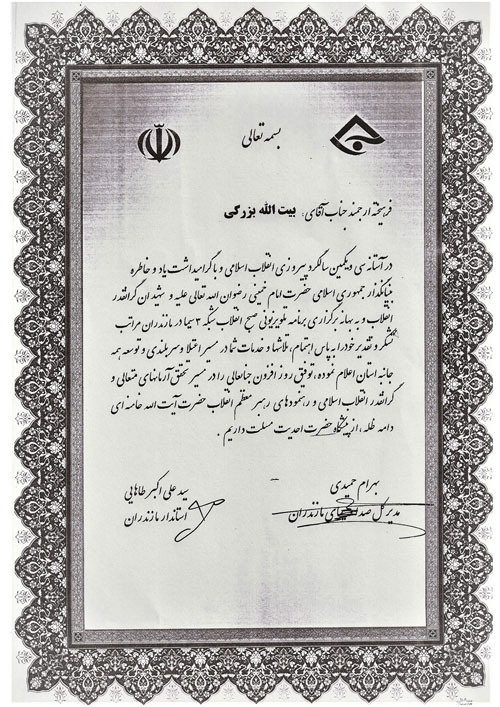 بسمه تعالی
فرهیخته ارجمند جناب آقای، بیت الله بزرگی
در آستانه سی و یکمین سالگرد پیروزی انقلاب اسلامی و با گرامیداشت یاد و خاطره
بنیانگذار جمهوری اسلامی حضرت امام خمینی رضوان الله تعالی علیه و شهیدان گرانقدر
انقلاب و به بهانه برگزاری برنامه تلویزیونی صبح انقلاب شبکه ۳ سیما در مازندران مراتب
تشکر و تقدیر خود را به پاس اهتمام، تلاشها و خدمات شما در مسیر اعتلا و سربلندی و توسعه همه
جانبه استان اعلام نموده، توفیق روز افزون جنابعالی را در مسیر تحقق آرمانهای متعالی و
گرانقدر انقلاب اسلامی و رهنمودهای رهبر معظم انقلاب حضرت آیت الله خامنه ای
دامه ظله، از پیشگاه حضرت احدیت مسئلت داریم.
بهرام حمیدی
مدیر کل صدا و سیمای مازندران
سید علی اکبر طاهایی
استاندار مازندران